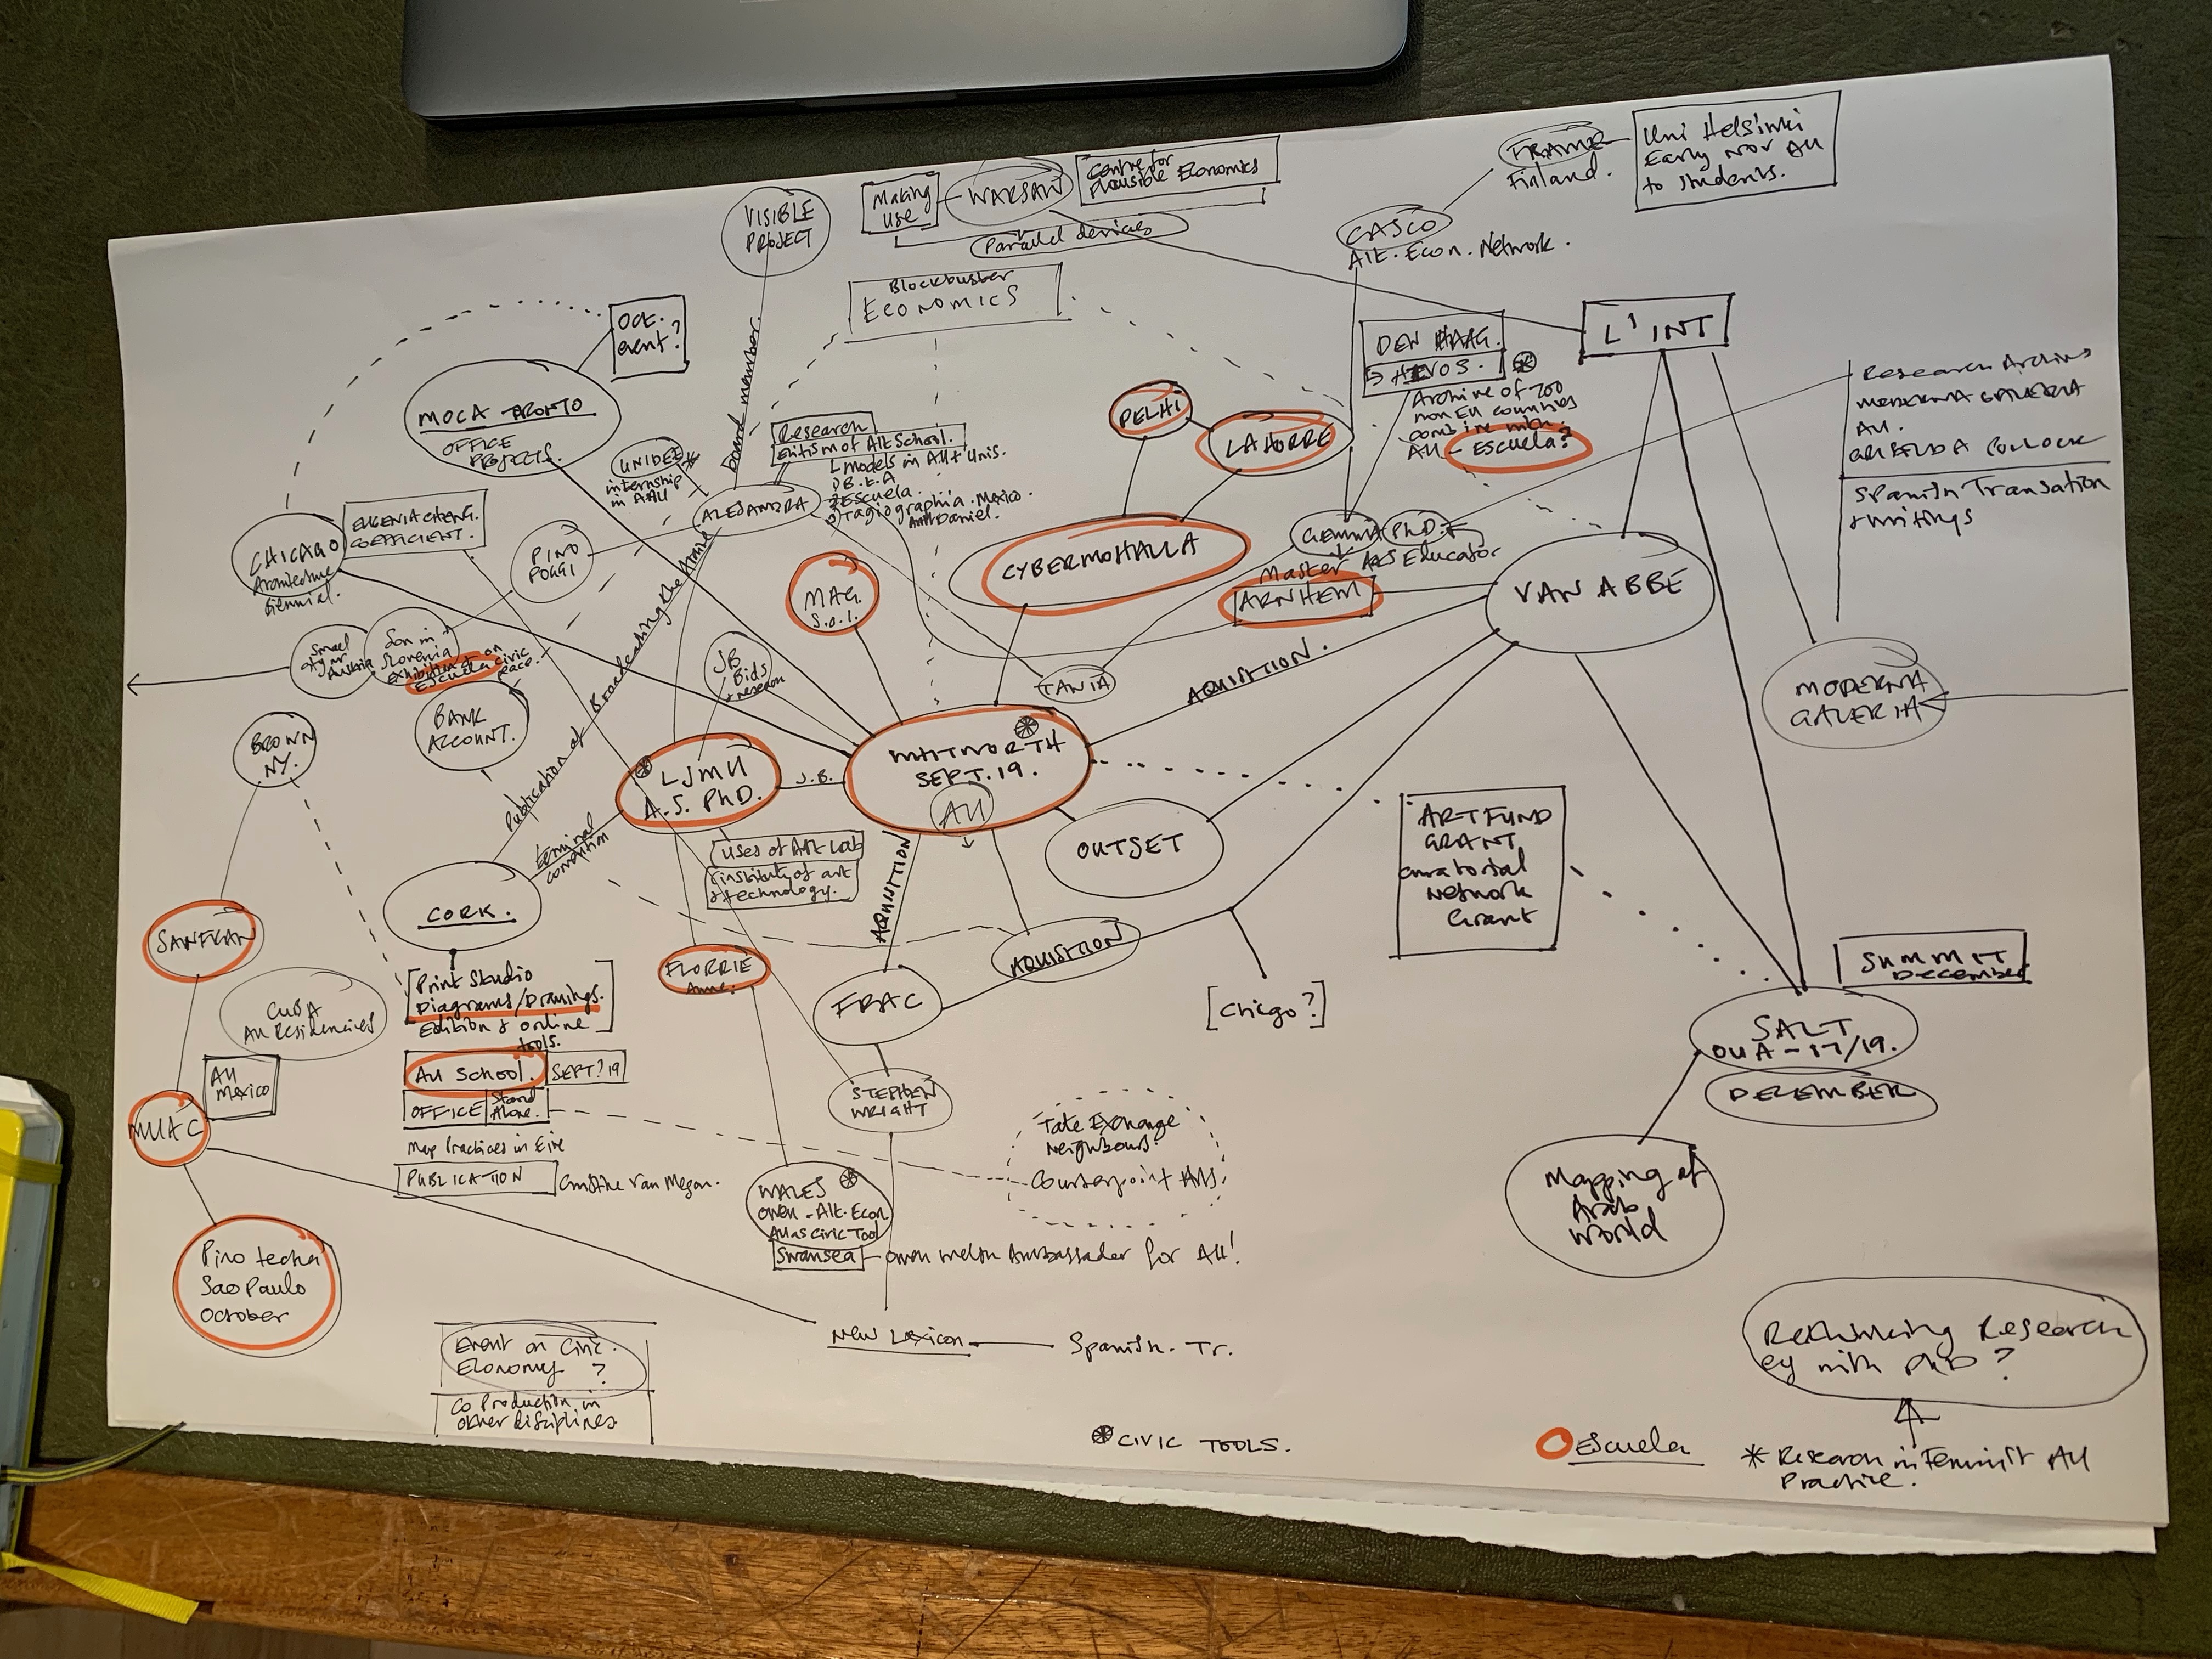 VISIBLE
PROJECT
Making
use
WARSAW
Centre for
Plausible Economics
Parallel devices
FRAME
Finland.
Uni Helsinki
Early Nov AU
to students.
CASCO
Alt. Econ. Network.
Blockbuster
ECONOMICS
OCT.
event?
L' INT
DEN HAAG.
HIVOS.
Archive of 200
non EU countries
combine with
AU - ESCUELA?
Research
MODERNA GALERIA
AU.
Spanish Transation
+ writings
MOCA TRONTO
OFFICE
PROJECTS.
board member.
UNIDEE
internship
in AAU
Research
of Alt School.
models in AU + Unis.
ESCUELA
Mexico
Daniel.
ALEJANDRA
DELHI
LAHORRE
CYBERMOHALLA
GEMMA PhD.
Master Arts Educator
ARNHEM
VAN ABBE
CHICAGO
Architecture
Biennial.
EUGENIA CHENG.
COEFFICIENT.
PINO
POGGI
MAG.
S.O.I.
Publication of Broadcasting the Archive
Small
Son in
Slovenia
exhibition on
Escuela civic
BANK
ACCOUNT.
JB
Bids
+ research
TANIA
AQUISITION.
MODERNA
GALERIA
BROWN
NY.
LJMU
A.S. PhD.
J.B.
WHITWORTH
SEPT. 19.
AU
OUTSET
ARTFUND
GRANT
curatorial
Network
Grant
terminal
condition
uses of Art Lab
institute of art
+ technology.
AQUISITION
CORK.
SANFRAN
CUBA
AU Residencies
FLORRIE
Anne.
FRAC
AQUISITION
[Chicgo?]
SUMMIT
DECEMBER
SALT
OUA - 17/19.
DECEMBER
Print Studio
Diagrams/Drawings.
Edition & online
tools.
AU SCHOOL. SEPT? 19
OFFICE Stand
Alone.
Map Practices in Eire
PUBLICATION
AU
MEXICO
MUAC
STEPHEN
WRIGHT
Tate Exchange
Neighbours.
Counterpoint Arts.
Mapping of
Arab
World
WALES
Owen - Alt. Econ
AU as Civic Tool
Swansea - Owen Welsh Ambassader for AU!
Pino techa
Sao Paulo
October
New Lexicon
Spanish. Tr.
Event on Civic.
Economy ?
Co Production in
other disciplines
Rethinking Research
eg with PhD ?
CIVIC TOOLS.
Escuela
* Research in Feminist AU
Practice.